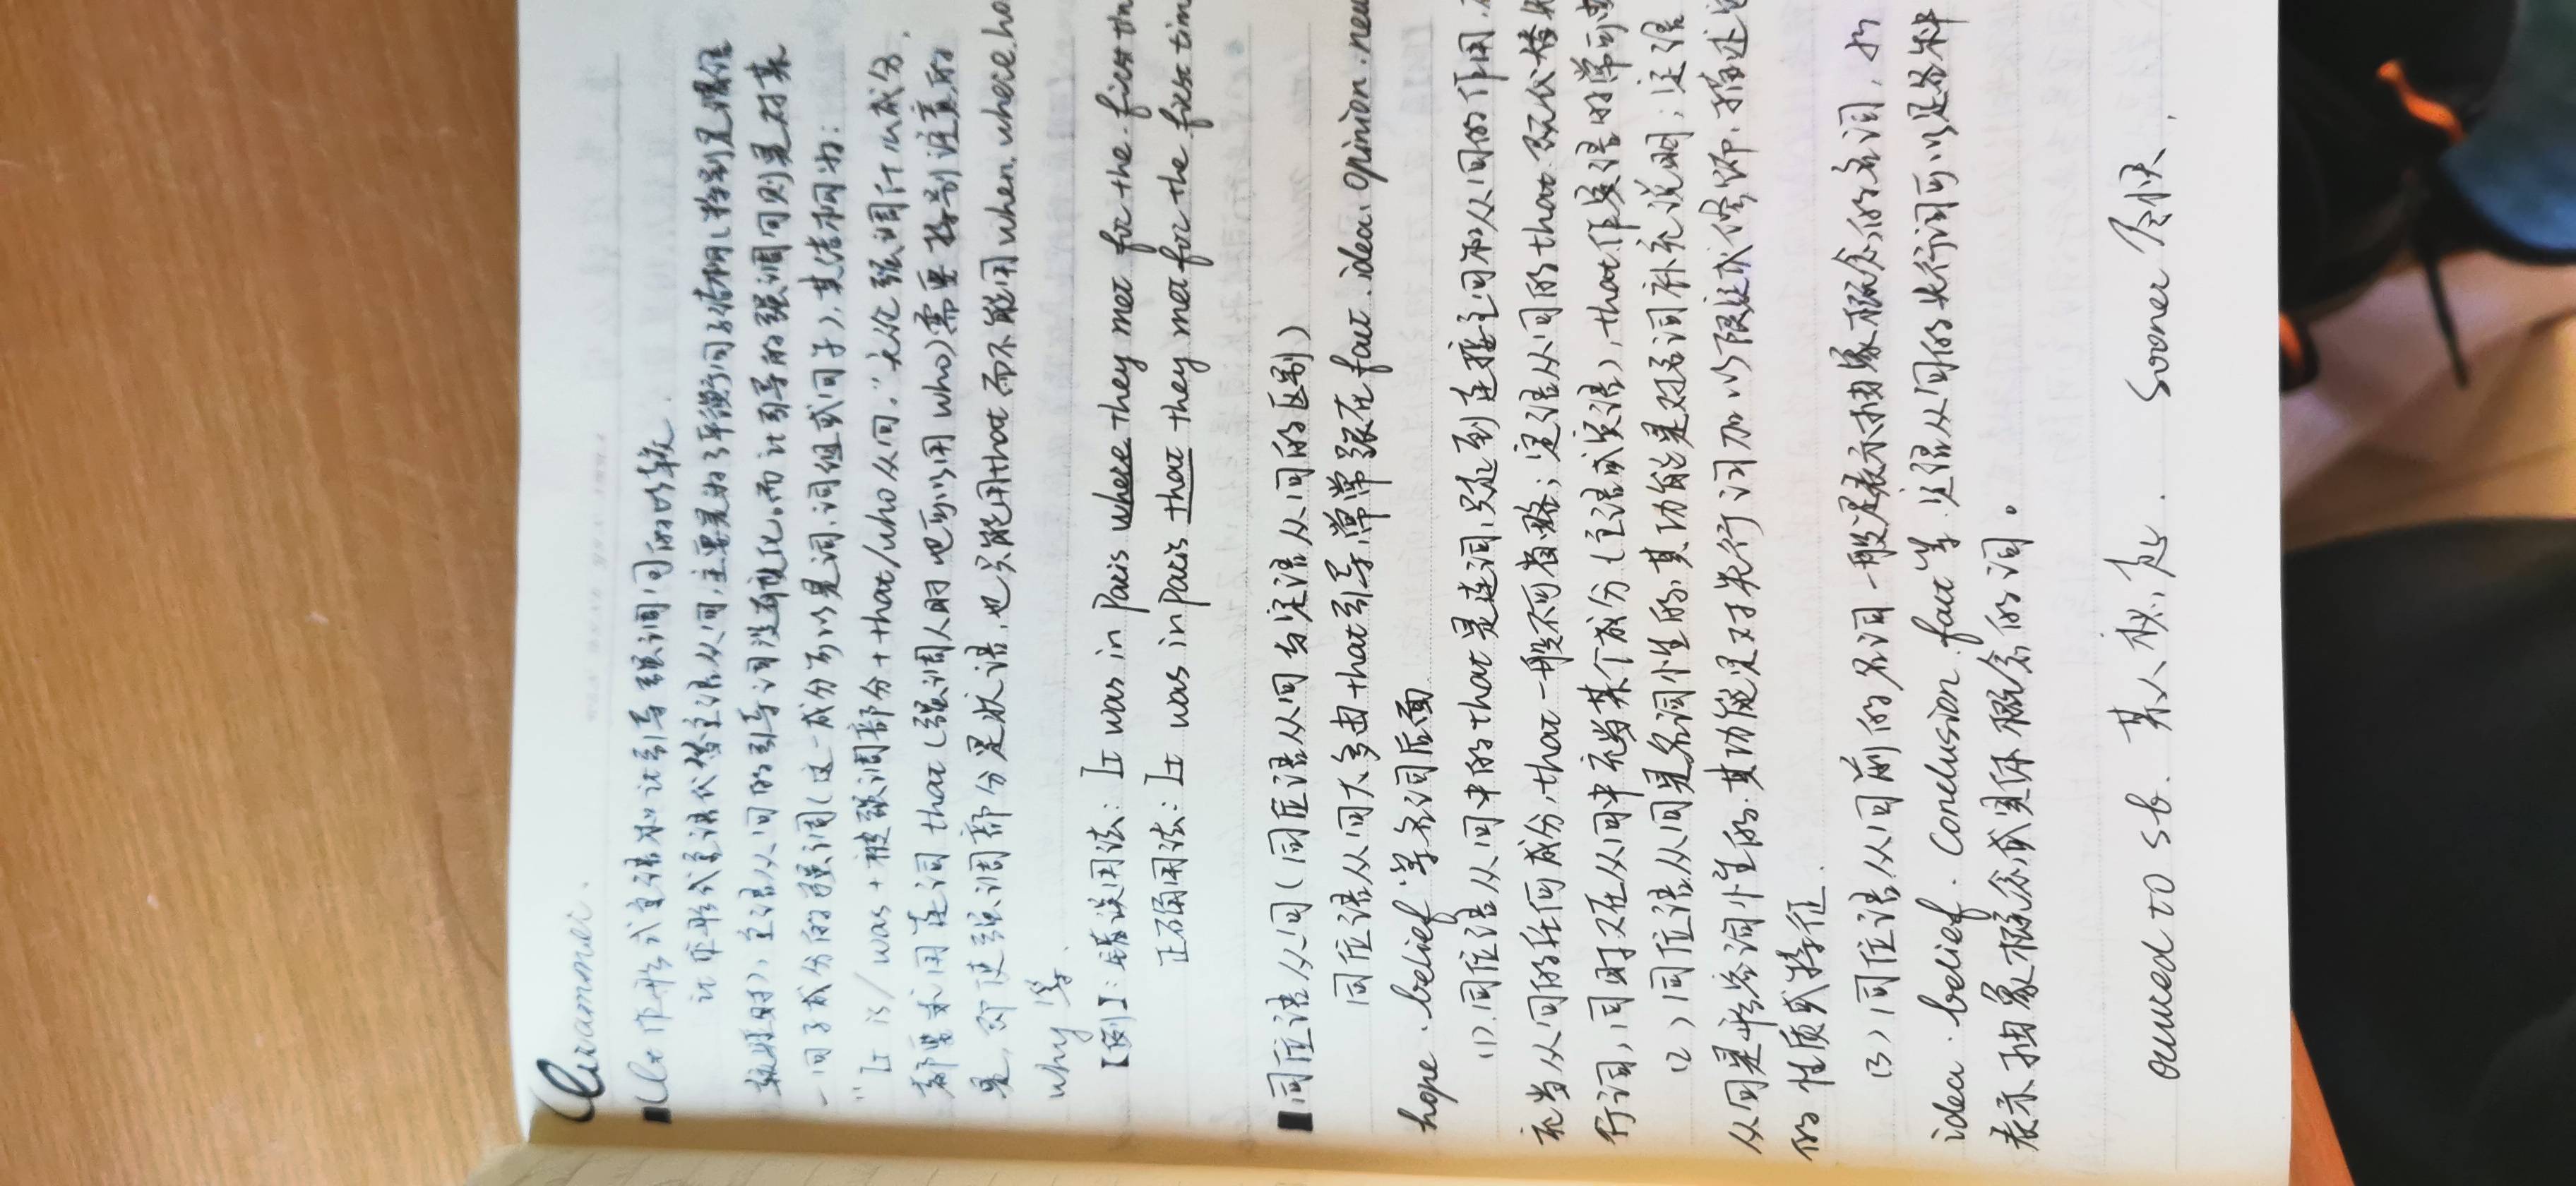 Grammer.
■It作形式主语和it引导强调句的比较.
it作形式主语代替主语从句,主要是为了平衡句子结构(特别是谓语
较短时),主语从句的引导词没有变化。而it引导的强调句则是对某
一句子成分的强调(这一成分可以是词、词组或句子),其结构为:
"It is/was+被强调部分+that/who从句."无论强调什么成分,
都要求用连词that(强调人时也可以用who)需要特别注意的
是,即使强调部分是状语,也只能用that而不能用when.where.ho
why等.
【例】:错误用法: It was in Paris where they met for the first tim
正确用法: It was in Paris that they met for the first tim
■同位语从句(同位语从句与定语从句的区别)
同位语从句大多由that引导,常常跟在fact.idea.opinion.new
hope.belief等名词后面
(1).同位语从句中的that是连词,只起到连接主句和从句的作用,
充当从句的任何成分,that一般不可省略;定语从句的that既代替
行词,同时又在从句中充当某个成分(主语或宾语),that作宾语时常可
(2)同位语从句是名词性的,其功能是对名词补充说明;定语
从句是形容词性的,其功能是对先行词加以限定或修饰,描述
的性质或特征.
(3)同位语从句前的名词一般是表示抽象概念的名词,如
idea.belief.conclusion.fact等.定语从句的先行词可以是各种
表示抽象概念或具体概念的词。
occurred to sb. 某人想起. sooner 尽快.